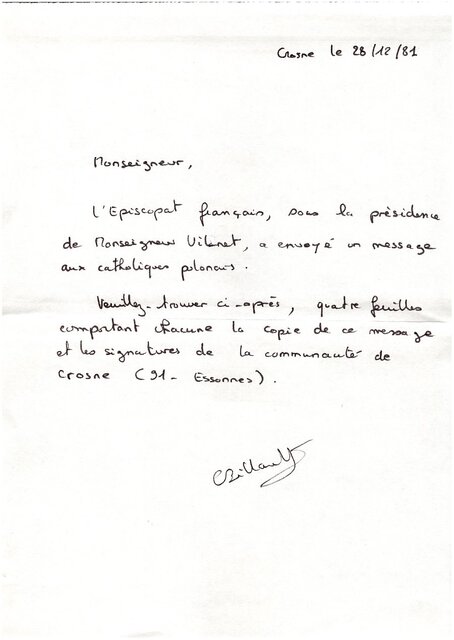 Crosne le 28/12/81
Monseigneur,
L'Episcopat français, sous la présidence
de Monseigneur Vilnet, a envoyé un message
aux catholiques polonais.
Veuillez-trouver ci-après, quatre feuilles
comportant chacune la copie de ce message
et les signatures de la communauté de
Crosne (91- Essonnes).